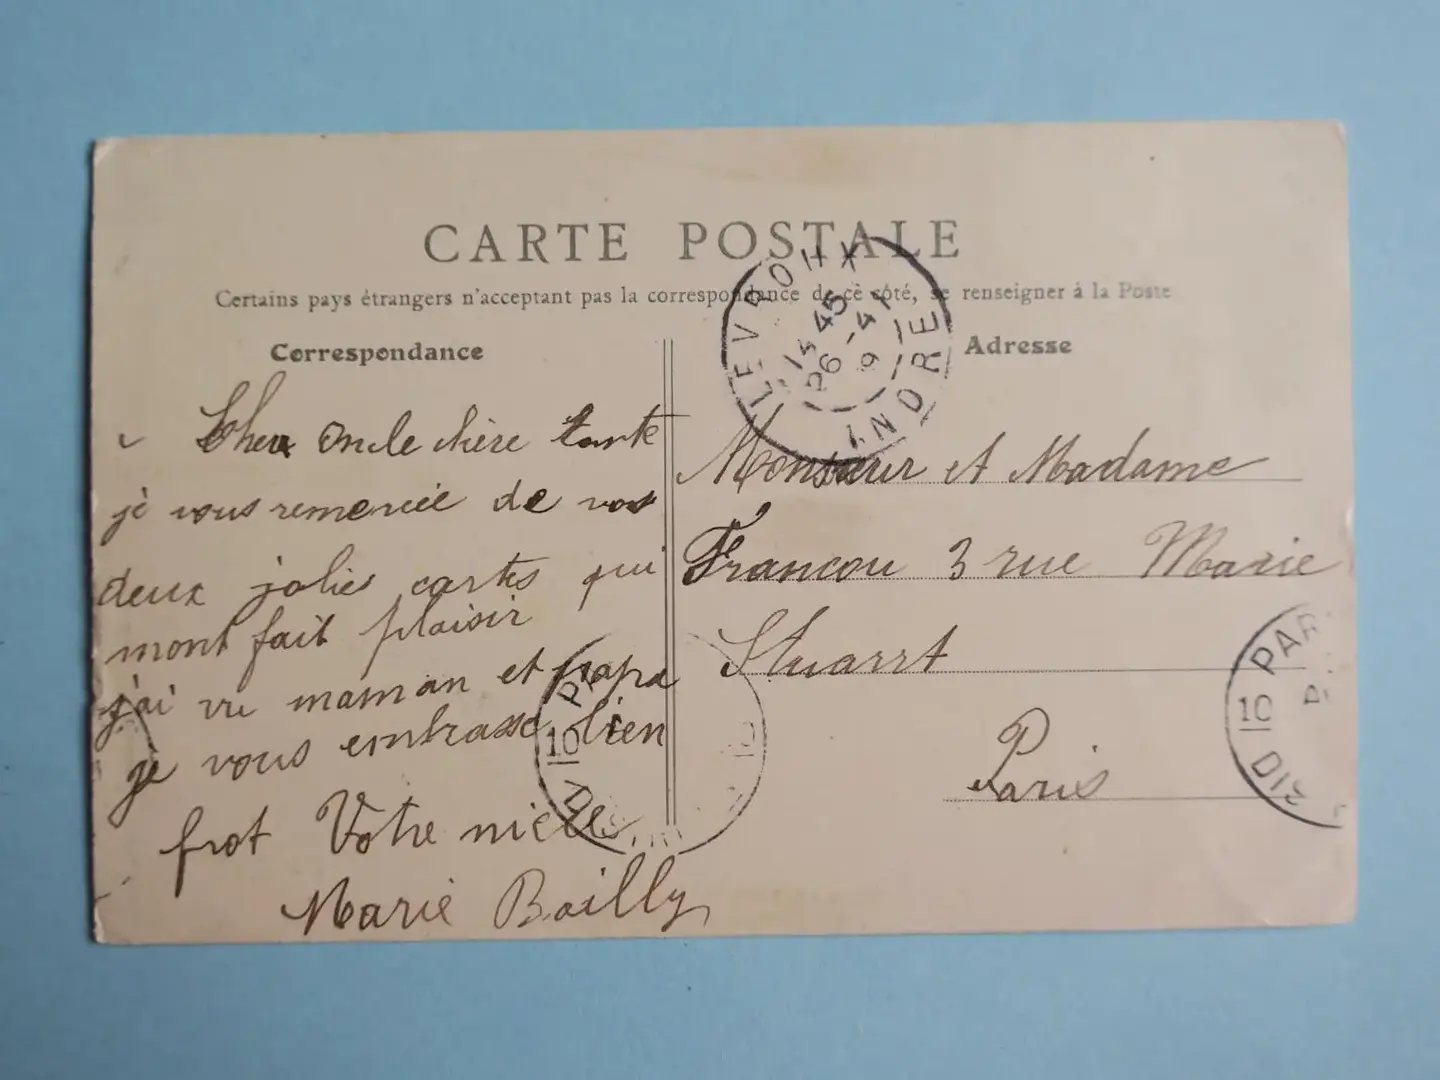 CARTE POSTALE
Certains pays étrangers n'acceptent pas la correspondance de ce côté, se renseigner à la Poste
Correspondance
Cher Oncle chère tante
je vous remercie de vos
deux jolies cartes qui
mont fait plaisir
j'ai vu maman et papa
je vous embrasse bien
frot Votre nièce
Marie Bailly
Adresse
Monsieur et Madame
Francou 3 rue Marie
Stuarrt
Paris
LEVROUX
45
26
INDRE
10
PAR
10
DIS